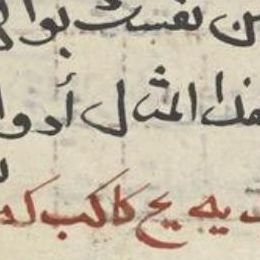 من نفسك بوا
هذا المثال أدوا
يه يح كا كب كه